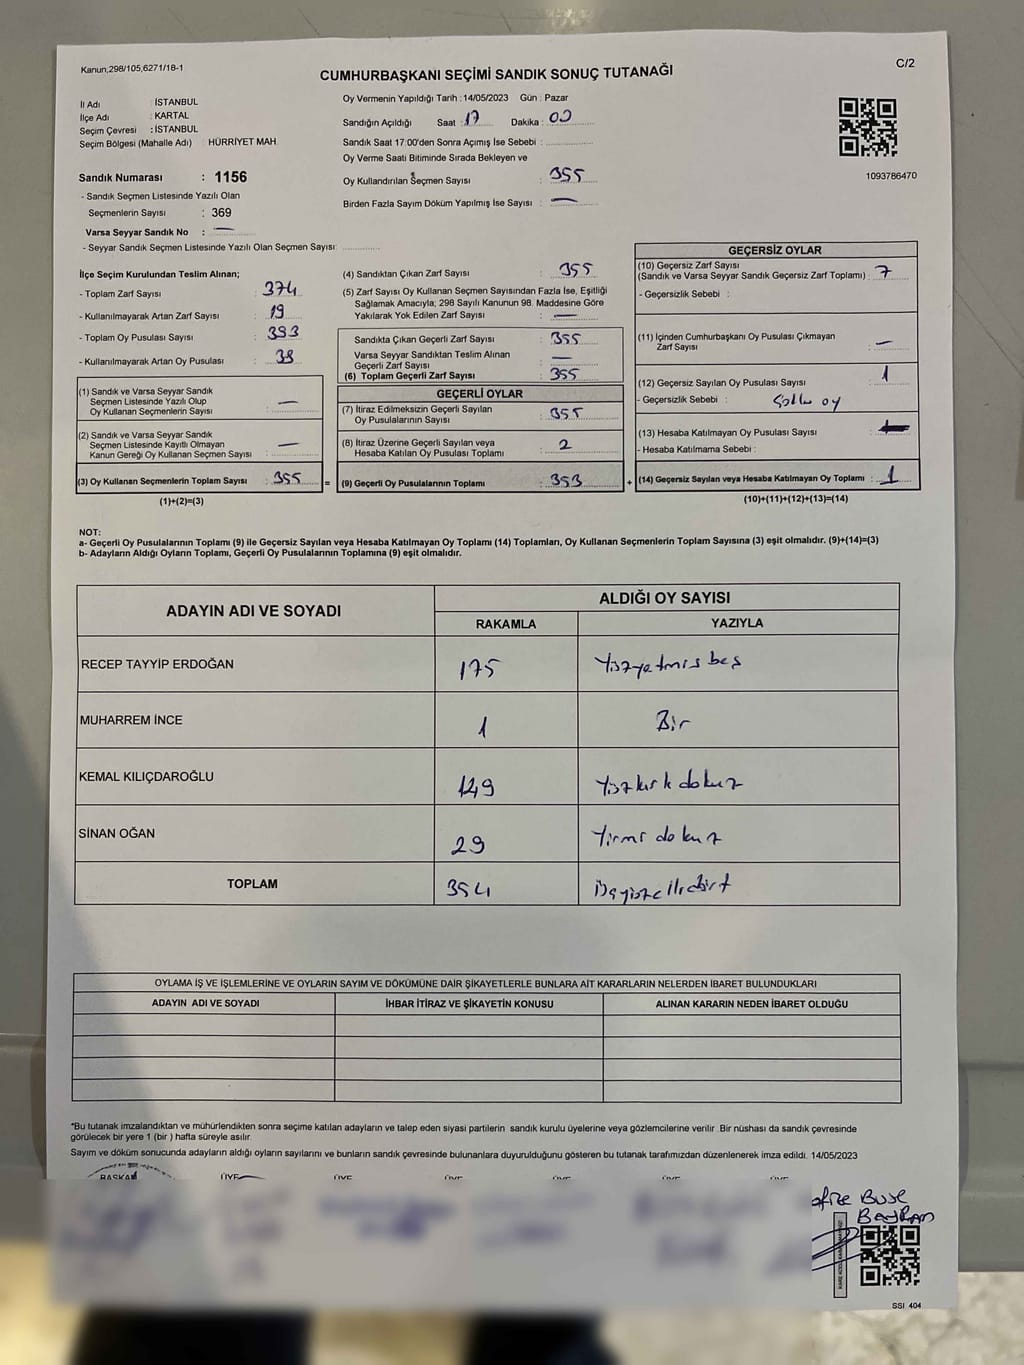 Kanun,298/105,6271/18-1
C/2
CUMHURBAŞKANI SEÇİMİ SANDIK SONUÇ TUTANAĞI
İl Adı : İSTANBUL
İlçe Adı : KARTAL
Seçim Çevresi : İSTANBUL
Seçim Bölgesi (Mahalle Adı) : HÜRRİYET MAH.
Oy Vermenin Yapıldığı Tarih :14/05/2023 Gün : Pazar
Sandığın Açıldığı Saat : 17 Dakika : 00
Sandık Saat 17:00'den Sonra Açımış İse Sebebi :
Oy Verme Saati Bitiminde Sırada Bekleyen ve
Oy Kullandırılan Seçmen Sayısı : 355
Birden Fazla Sayım Döküm Yapılmış İse Sayısı : —
1093786470
Sandık Numarası : 1156
- Sandık Seçmen Listesinde Yazılı Olan
Seçmenlerin Sayısı : 369
Varsa Seyyar Sandık No : —
- Seyyar Sandık Seçmen Listesinde Yazılı Olan Seçmen Sayısı:
İlçe Seçim Kurulundan Teslim Alınan;
- Toplam Zarf Sayısı : 374
- Kullanılmayarak Artan Zarf Sayısı : 19
- Toplam Oy Pusulası Sayısı : 393
- Kullanılmayarak Artan Oy Pusulası : 38
(1) Sandık ve Varsa Seyyar Sandık
Seçmen Listesinde Yazılı Olup
Oy Kullanan Seçmenlerin Sayısı : —
(2) Sandık ve Varsa Seyyar Sandık
Seçmen Listesinde Kayıtlı Olmayan
Kanun Gereği Oy Kullanan Seçmen Sayısı : —
(3) Oy Kullanan Seçmenlerin Toplam Sayısı : 355 =
(1)+(2)=(3)
(4) Sandıktan Çıkan Zarf Sayısı : 355
(5) Zarf Sayısı Oy Kullanan Seçmen Sayısından Fazla İse, Eşitliği
Sağlamak Amacıyla; 298 Sayılı Kanunun 98. Maddesine Göre
Yakılarak Yok Edilen Zarf Sayısı : —
Sandıkta Çıkan Geçerli Zarf Sayısı : 355
Varsa Seyyar Sandıktan Teslim Alınan
Geçerli Zarf Sayısı : —
(6) Toplam Geçerli Zarf Sayısı : 355
GEÇERLİ OYLAR
(7) İtiraz Edilmeksizin Geçerli Sayılan
Oy Pusulalarının Sayısı : 355
(8) İtiraz Üzerine Geçerli Sayılan veya
Hesaba Katılan Oy Pusulası Toplamı : 2
(9) Geçerli Oy Pusulalarının Toplamı : 353 +
GEÇERSİZ OYLAR
(10) Geçersiz Zarf Sayısı
(Sandık ve Varsa Seyyar Sandık Geçersiz Zarf Toplamı) : 7
- Geçersizlik Sebebi :
(11) İçinden Cumhurbaşkanı Oy Pusulası Çıkmayan
Zarf Sayısı : —
(12) Geçersiz Sayılan Oy Pusulası Sayısı : 1
- Geçersizlik Sebebi : oy
(13) Hesaba Katılmayan Oy Pusulası Sayısı :
- Hesaba Katılmama Sebebi :
(14) Geçersiz Sayılan veya Hesaba Katılmayan Oy Toplamı : 1
(10)+(11)+(12)+(13)=(14)
NOT:
a- Geçerli Oy Pusulalarının Toplamı (9) ile Geçersiz Sayılan veya Hesaba Katılmayan Oy Toplamı (14) Toplamları, Oy Kullanan Seçmenlerin Toplam Sayısına (3) eşit olmalıdır. (9)+(14)=(3)
b- Adayların Aldığı Oyların Toplamı, Geçerli Oy Pusulalarının Toplamına (9) eşit olmalıdır.
ADAYIN ADI VE SOYADI
ALDIĞI OY SAYISI
RAKAMLA YAZIYLA
RECEP TAYYİP ERDOĞAN 175 Yüzyetmiş beş
MUHARREM İNCE 1 Bir
KEMAL KILIÇDAROĞLU 149 Yüzkırk dokuz
SİNAN OĞAN 29 Yirmi dokuz
TOPLAM 354 Üçyüzellidört
OYLAMA İŞ VE İŞLEMLERİNE VE OYLARIN SAYIM VE DÖKÜMÜNE DAİR ŞİKAYETLERLE BUNLARA AİT KARARLARIN NELERDEN İBARET BULUNDUKLARI
ADAYIN ADI VE SOYADI İHBAR İTİRAZ VE ŞİKAYETİN KONUSU ALINAN KARARIN NEDEN İBARET OLDUĞU
*Bu tutanak imzalandıktan ve mühürlendikten sonra seçime katılan adayların ve talep eden siyasi partilerin sandık kurulu üyelerine veya gözlemcilerine verilir .Bir nüshası da sandık çevresinde
görülecek bir yere 1 (bir ) hafta süreyle asılır.
Sayım ve döküm sonucunda adayların aldığı oyların sayılarını ve bunların sandık çevresinde bulunanlara duyurulduğunu gösteren bu tutanak tarafımızdan düzenlenerek imza edildi. 14/05/2023
BAŞKAN ÜYE ÜYE ÜYE ÜYE ÜYE ÜYE
Buse
Bayram
SSI 404